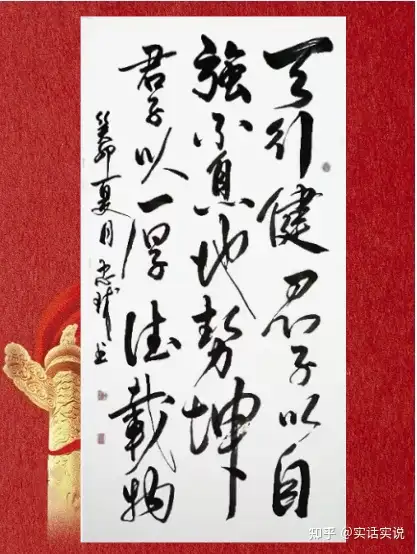 天行健君子以自
強不息地勢坤
君子以厚德載物
癸卯夏月
知乎 @实话实说